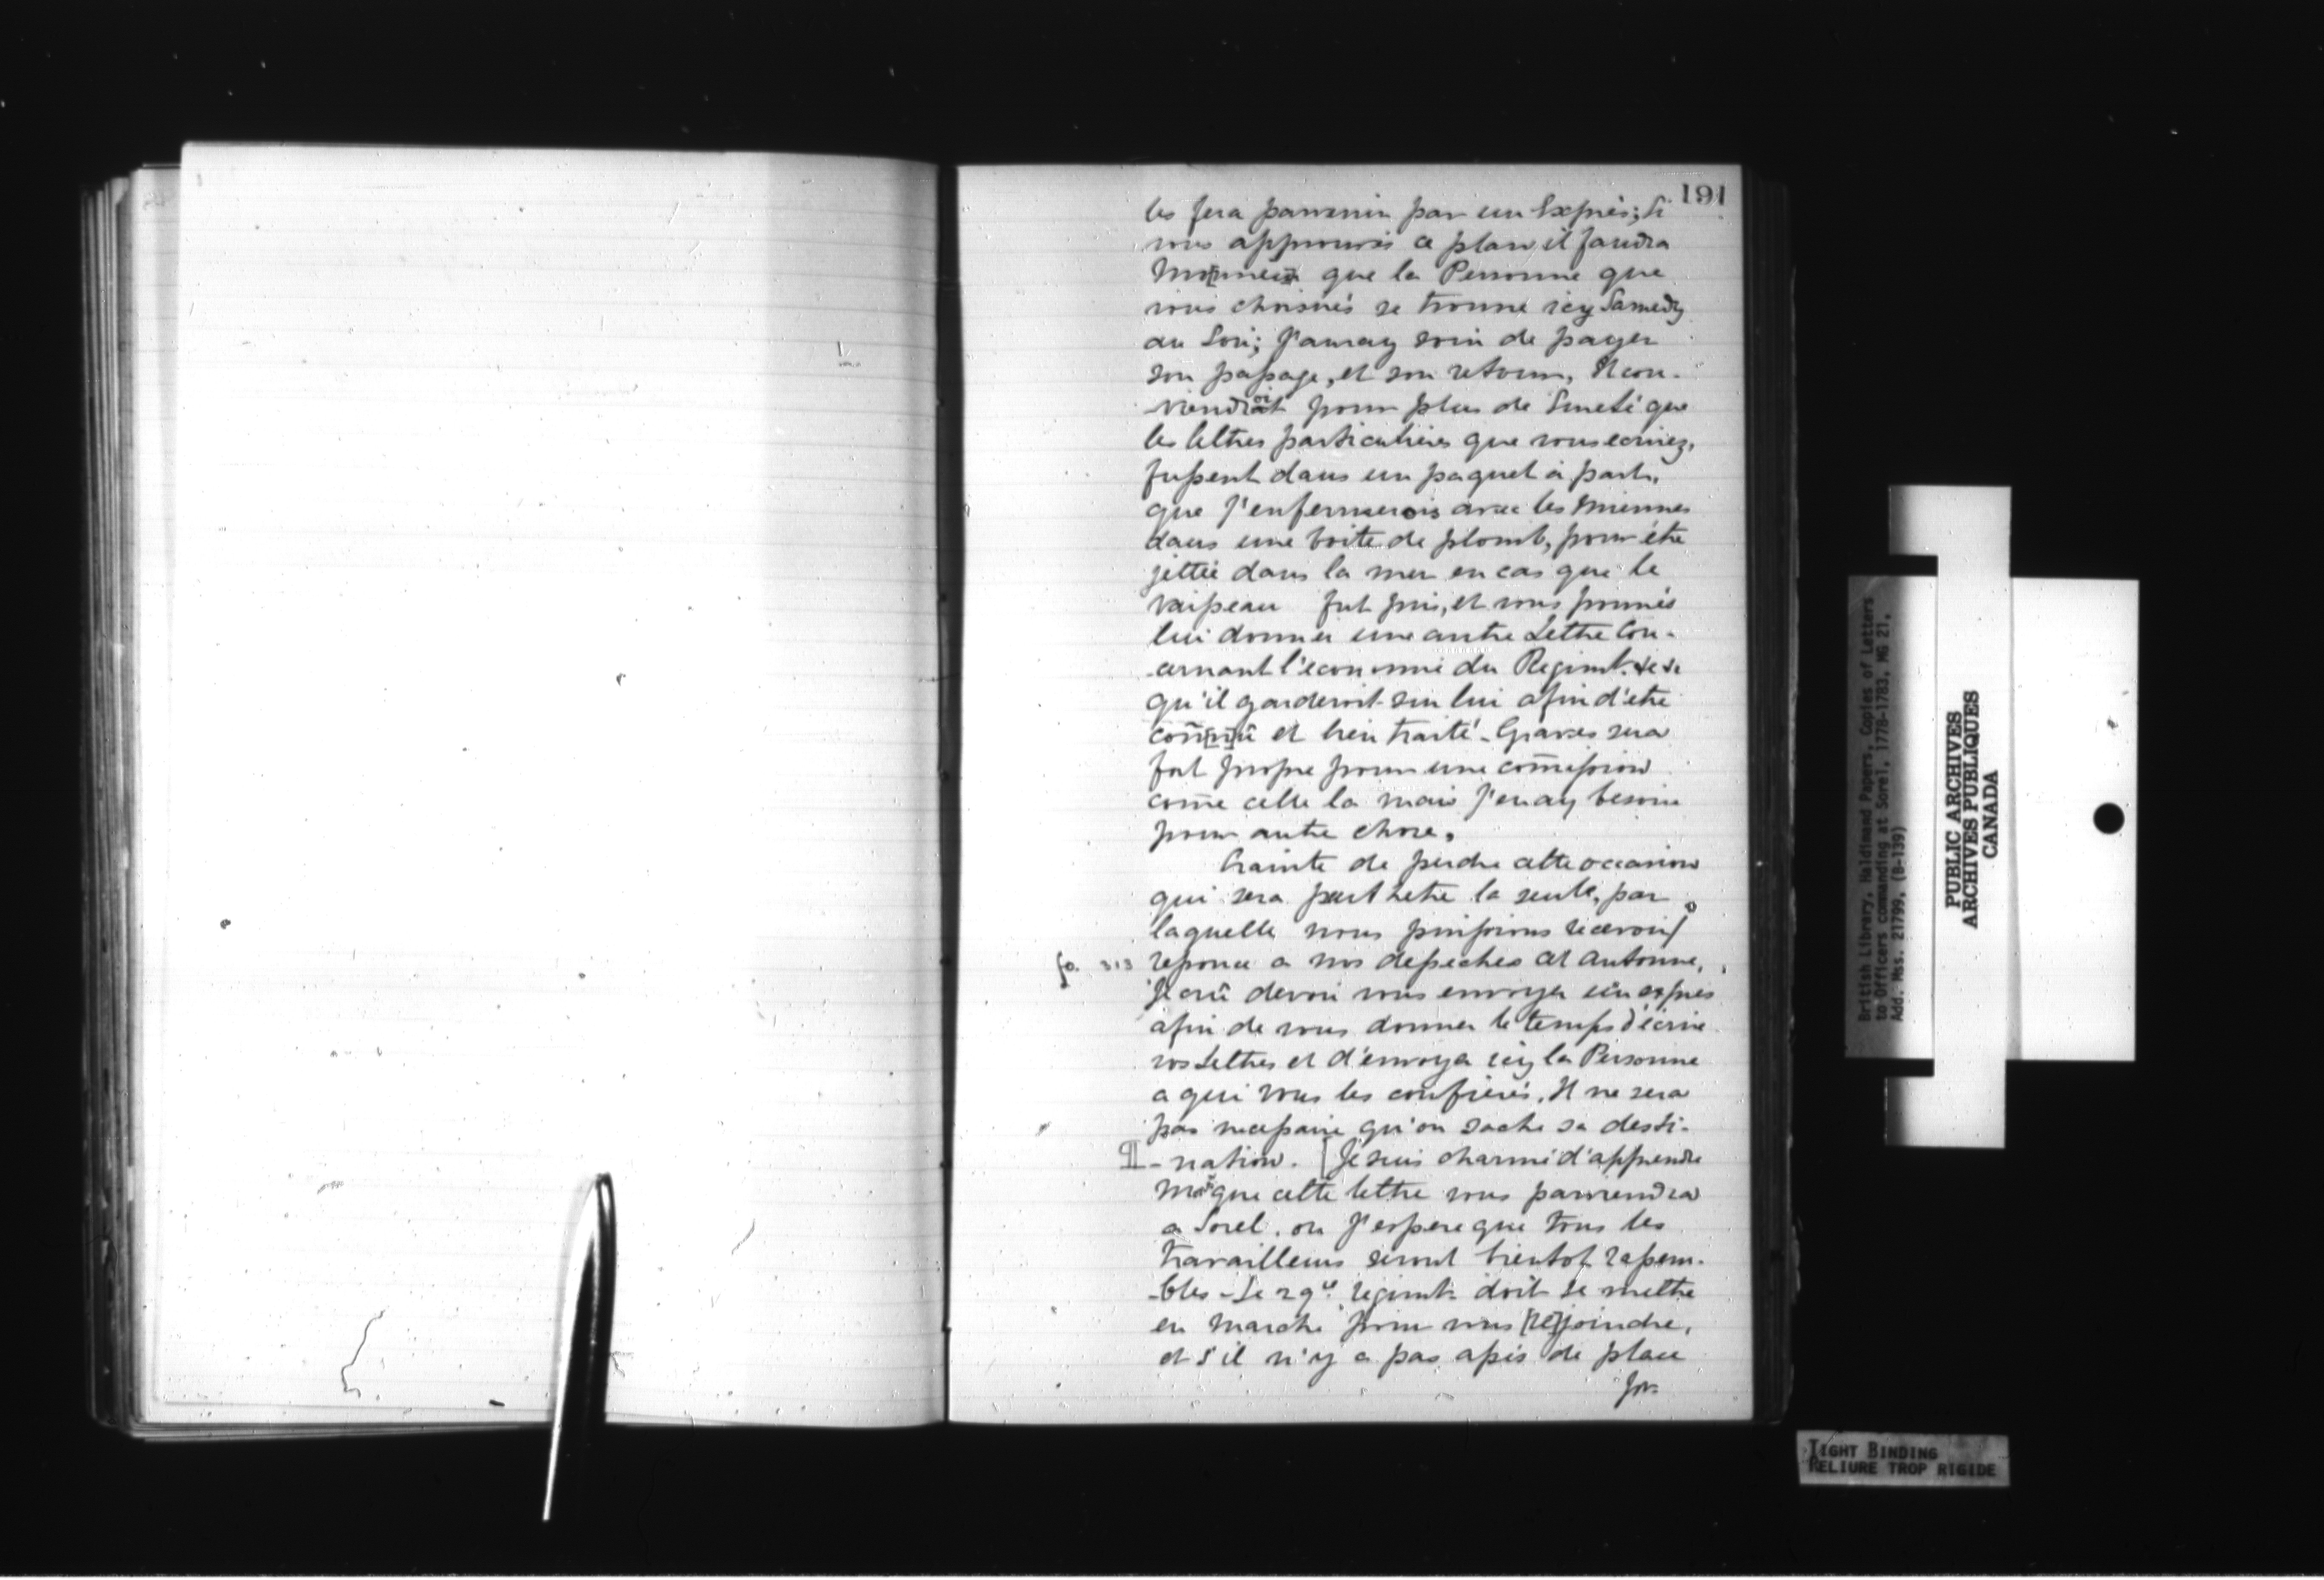 191
les fera parvenir par un Exprès; Si
vous approuvés ce plan il faudra
que la Personne que
vous choisirés se trouve icy Samedy
au Soir; J'auray soin de payer
son passage, et son retour, Il con-
-viendroit pour plus de Sureté que
les lettres particulières que vous ecrivez,
fussent dans un paquet à part,
que J'enfermerois avec les miennes
dans une boite de plomb, pour être
jettée dans la mer en cas que le
vaisseau fut pris, et vous pourrés
lui donner une autre Lettre Con-
-cernant l'économie du Regimt. &c &c
qu'il garderoit sur lui afin d'etre
et bien traité. Graves sera
fort propre pour une com̃ission
com̃e celle la mais J'en ay besoin
pour autre chose.
Crainte de perdre cette occasion
qui sera peut hetre la seule, par
laquelle nous puissions recevoir
fo. 313 reponce a nos depeches cet automne,
Je crû devoir vous envoyer un expres
afin de vous donner le temps d'écrire
vos Lettres et d'envoyer icy la Personne
a qui vous les confierés. Il ne sera
pas necessaire qu'on sache sa desti-
-nation. [Je suis charmé d'apprendre
que cette lettre vous parviendra
a Sorel. ou J'espere que tous les
travailleurs seront bientot rassem-
-bles - Le 29e. regimt. doit se mettre
en marche pour vous [re]joindre,
et s'il n'y a pas assés de place
for
British Library, Haldimand Papers, Copies of Letters
to Officers commanding at Sorel, 1778-1783, MG 21,
Add. Mss. 21799, (B-139)
PUBLIC ARCHIVES
ARCHIVES PUBLIQUES
CANADA
TIGHT BINDING
RELIURE TROP RIGIDE